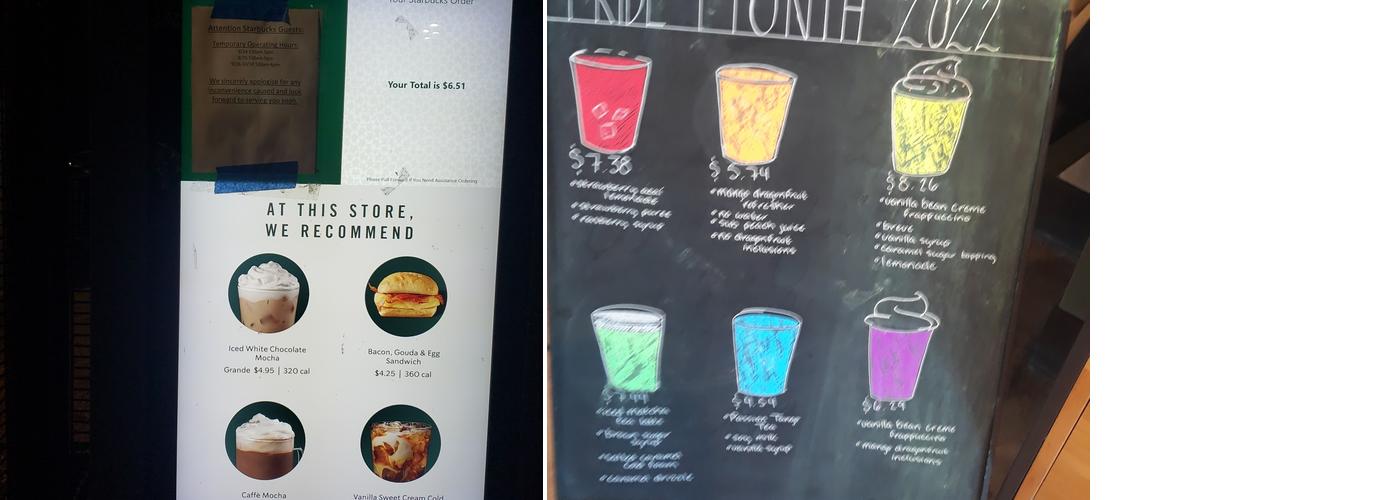 Your Starbucks Order
Attention Starbucks Guests:
Temporary Operating Hours:
We sincerely apologize for any
inconvenience caused and look
forward to serving you soon.
Your Total is $6.51
Please Pull Forward If You Need Assistance Ordering
AT THIS STORE,
WE RECOMMEND
Iced White Chocolate
Mocha
Grande $4.95 | 320 cal
Bacon, Gouda & Egg
Sandwich
$4.25 | 360 cal
Caffè Mocha
Vanilla Sweet Cream Cold
PRIDE MONTH 2022
$7.38
strawberry acai
lemonade
strawberry puree
raspberry syrup
$5.74
mango dragonfruit
refresher
no water
sub peach juice
no dragonfruit
inclusions
$8.26
vanilla bean creme
frappuccino
breve
vanilla syrup
caramel sugar topping
lemonade
$7.44
iced matcha
tea latte
brown sugar
syrup
salted caramel
cold foam
caramel drizzle
$4.54
Passion Tango
Tea
soy milk
vanilla syrup
$6.29
vanilla bean creme
frappuccino
mango dragonfruit
inclusions